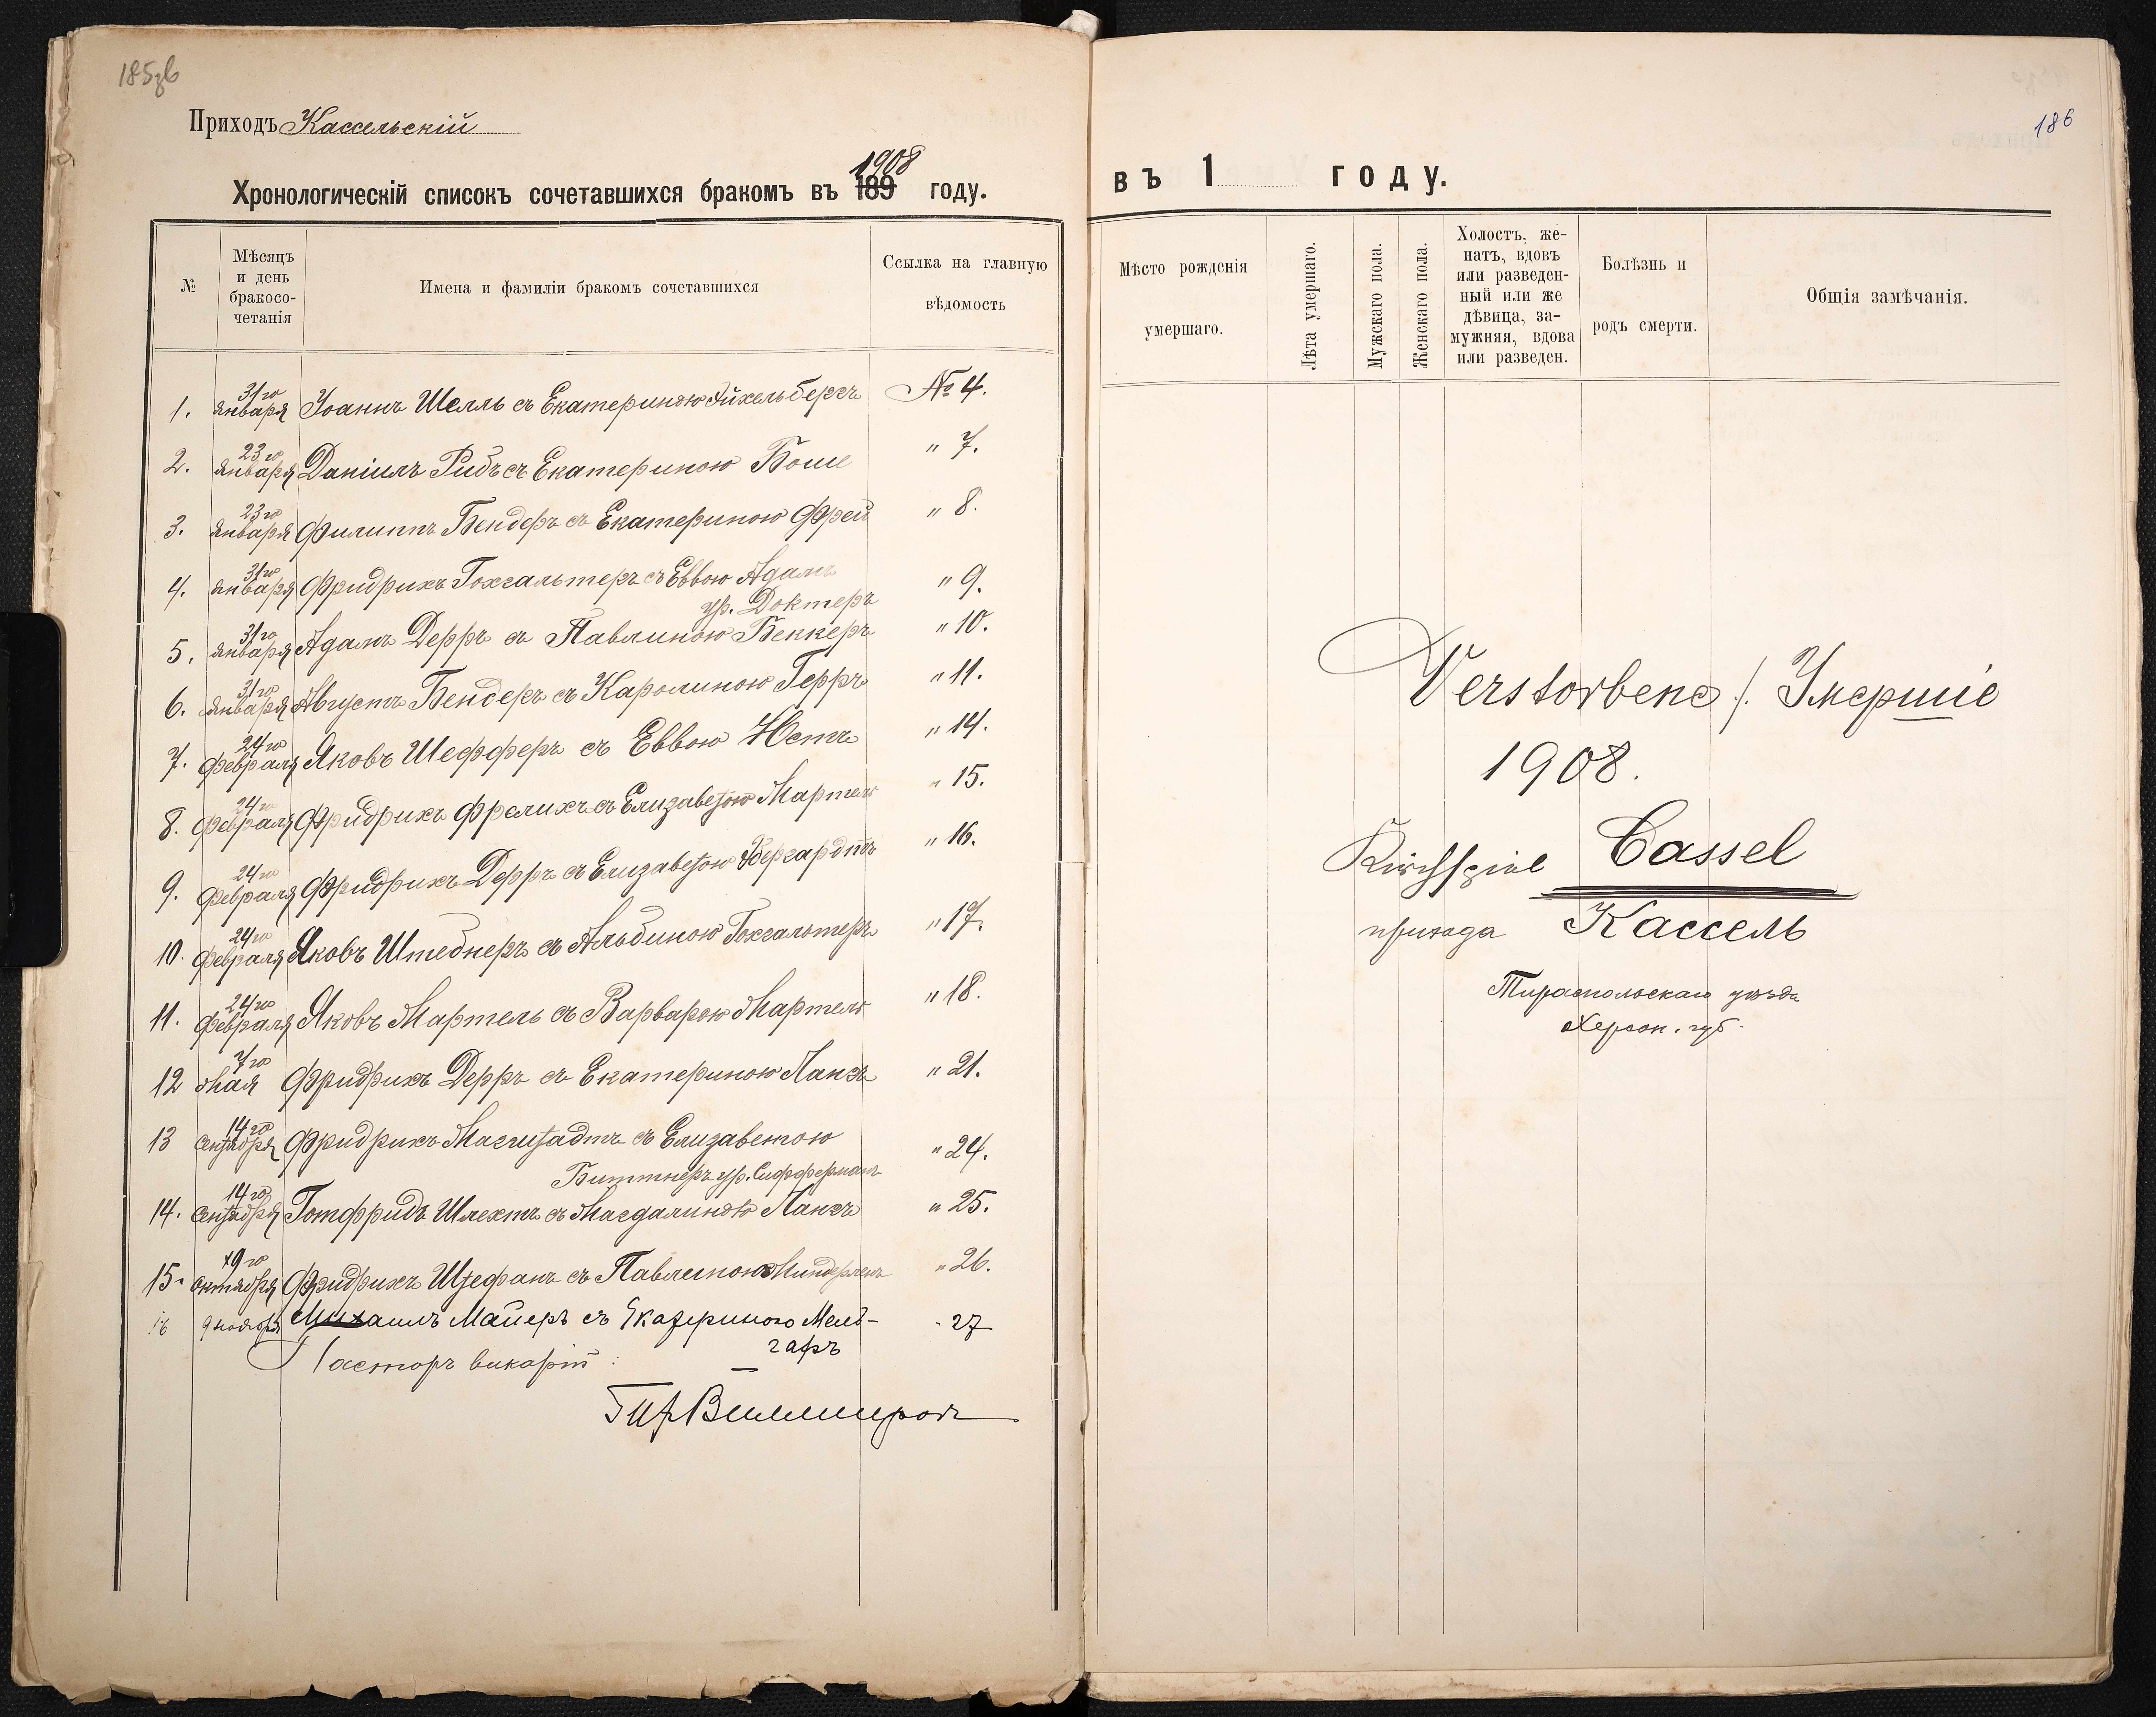 185об
Приходъ Кассельскій
1908
Хронологическій списокъ сочетавшихся бракомъ въ 189 году.
№
Мѣсяцъ и день бракосо-четанія
Имена и фамиліи бракомъ сочетавшихся
Ссылка на главную вѣдомость
1. 31го января Іоаннъ Шелль съ Екатериною Эйхельбергъ № 4.
2. 23го января Даніилъ Ридъ съ Екатериною Боше " 7.
3. 23го января Филиппъ Бендеръ съ Екатериною Фрей " 8.
4. 31го января Фридрихъ Гохгальтеръ съ Еввою Адамъ " 9.
ур. Доктеръ
5. 31го января Адамъ Дерръ съ Павлиною Беккеръ " 10.
6. 31го января Августъ Бендеръ съ Каролиною Герръ " 11.
7. 24го февраля Яковъ Шефферъ съ Еввою Юстъ " 14.
8. 24го февраля Фридрихъ Фрелихъ съ Елизаветою Мартель " 15.
9. 24го февраля Фридрихъ Дерръ съ Елизаветою " 16.
10. 24го февраля Яковъ Штебнеръ съ Альбиною Гохгальтеръ " 17.
11. 24го февраля Яковъ Мартель съ Варварою Мартель " 18.
12 7го мая Фридрихъ Дерръ съ Екатериною Лангъ " 21.
13 14го сентября Фридрихъ Магштадтъ съ Елизаветою " 24.
Биттнеръ ур. Сифферманъ
14. 14го сентября Готфридъ Шлехтъ съ Магдалиною Лангъ " 25.
15. 19го октября Фридрихъ Штефанъ съ Павлиною Миндерленъ " 26.
16 9 ноября Михаилъ Майеръ съ Екатериною Мель- " 27
гафъ
Пасторъ викарій :
186
въ 1 году.
Мѣсто рожденія умершаго.
Лѣта умершаго.
Мужскаго пола.
Женскаго пола.
Холостъ, же-
натъ, вдовъ
или разведен-
ный или же
дѣвица, за-
мужняя, вдова
или разведен.
Болѣзнь и родъ смерти.
Общія замѣчанія.
Verstorbene /. Умершіе
1908.
Kirchspiel Cassel
прихода Кассель
Тираспольскаго уѣзда
Херсон. губ.